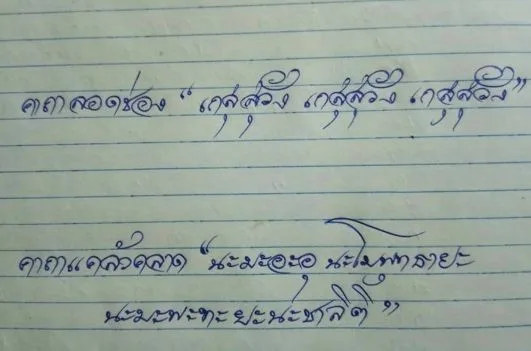 คาถาลอดช่อง “เกสุสุวัง เกสุสุวัง เกสุสุวัง”
คาถาแคล้วคลาด “นะมะอะอุ นะโมพุทธายะ
นะมะพะทะ ยะนะชาลีติ”